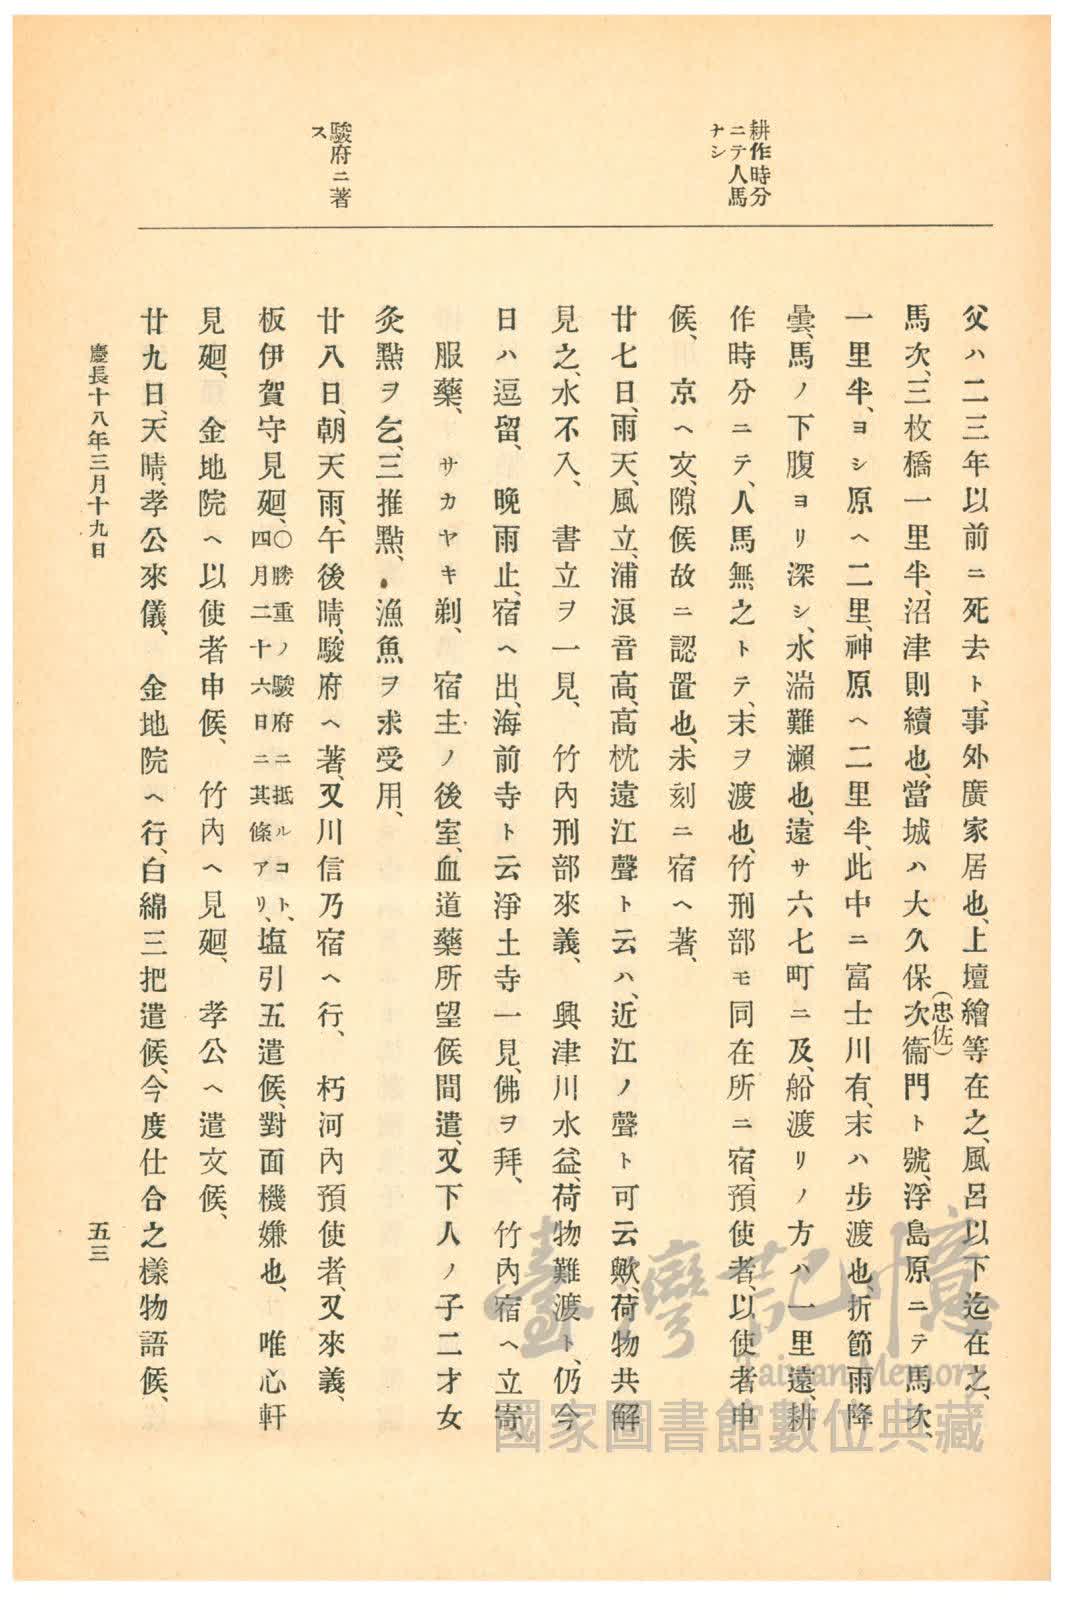 耕作時分
ニテ人馬
ナシ
駿府ニ著
ス
父ハ二三年以前ニ死去ト、事外廣家居也、上壇繪等在之、風呂以下迄在之、
馬次、三枚橋一里半、沼津則續也、當城ハ大久保次衞門ト號、浮島原ニテ馬次、
(忠佐)
一里半、ヨシ原ヘ二里、神原ヘ二里半、此中ニ富士川有、末ハ步渡也、折節雨降
曇、馬ノ下腹ヨリ深シ、水湍難瀨也、遠サ六七町ニ及、船渡リノ方ハ一里遠、耕
作時分ニテ、人馬無之トテ、末ヲ渡也、竹刑部モ同在所ニ宿、預使者、以使者申
候、京ヘ文、隙候故ニ認置也、未刻ニ宿ヘ著、
廿七日、雨天、風立、浦浪音高、高枕遠江聲ト云ハ、近江ノ聲ト可云歟、荷物共解
見之、水不入、書立ヲ一見、竹內刑部來義、興津川水益、荷物難渡ト、仍今
日ハ逗留、晩雨止、宿ヘ出、海前寺ト云淨土寺一見、佛ヲ拜、竹內宿ヘ立寄、
服藥、サカヤキ剃、宿主ノ後室、血道藥所望候間遣、又下人ノ子二才女
灸點ヲ乞、三推點、漁魚ヲ求受用、
廿八日、朝天雨、午後晴、駿府ヘ著、又川信乃宿ヘ行、朽河內預使者、又來義、
板伊賀守見廻、〇勝重ノ駿府ニ抵ルコト、
四月二十六日ニ其條アリ、塩引五遣候、對面機嫌也、唯心軒
見廻、金地院ヘ以使者申候、竹內ヘ見廻、孝公ヘ遣文候、
廿九日、天晴、孝公來儀、金地院ヘ行、白綿三把遣候、今度仕合之樣物語候、
慶長十八年三月十九日
五三
臺灣記憶
Taiwan Memory
國家圖書館數位典藏